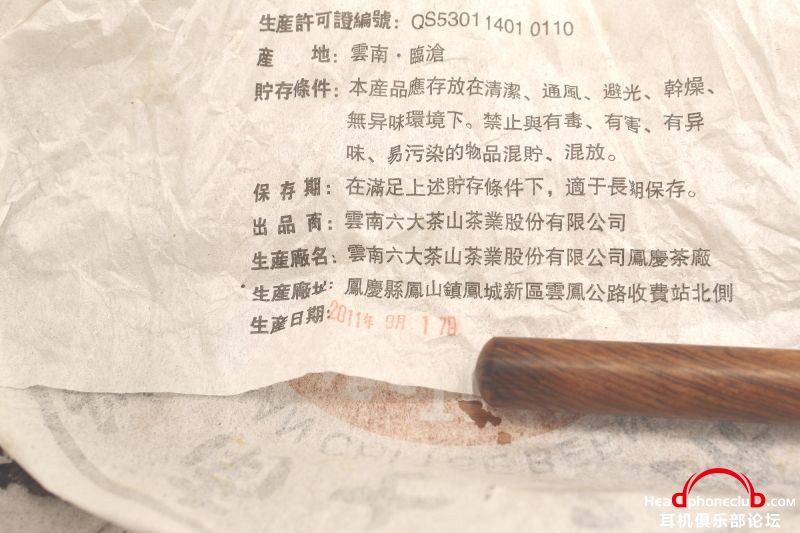 生産許可證編號：QS5301 1401 0110
産　地：雲南·臨滄
貯存條件：本産品應存放在清潔、通風、避光、幹燥、
無异味環境下。禁止與有毒、有害、有异
味、易污染的物品混貯、混放。
保存期：在滿足上述貯存條件下，適于長期保存。
出品商：雲南六大茶山茶業股份有限公司
生産廠名：雲南六大茶山茶業股份有限公司鳳慶茶廠
生産廠址：鳳慶縣鳳山鎮鳳城新區雲鳳公路收費站北側
生産日期：2011年 9月 17日
Headphoneclub.com
耳机俱乐部论坛